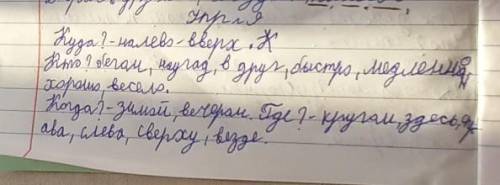 Упр 19
Куда? - налево - вверх. К
Кто? бегам, наугад, в друг, быстро, медленно,
хорошо, весело.
Когда? - зимой, вечерам. Где? - кругам, здесь,
ава, слева, сверху, везде.